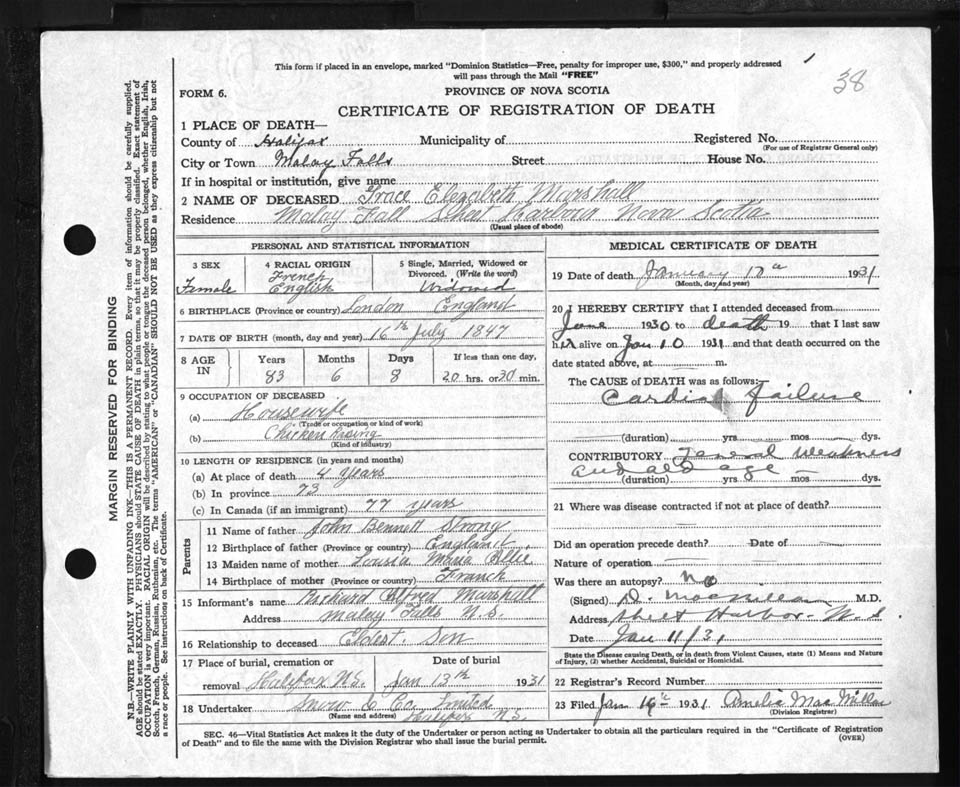 This form if placed in an envelope, marked "Dominion Statistics—Free, penalty for improper use, $300," and properly addressed
will pass through the Mail "FREE"
38
FORM 6.
PROVINCE OF NOVA SCOTIA
CERTIFICATE OF REGISTRATION OF DEATH
1 PLACE OF DEATH—
County of Halifax Municipality of Registered No.
(For use of Registrar General only)
City or Town Malay Falls Street House No.
If in hospital or institution, give name
2 NAME OF DECEASED Grace Elizabeth Marshall
Residence Malay Fall Sheet Harbour Nova Scotia
(Usual place of abode)
PERSONAL AND STATISTICAL INFORMATION
3 SEX 4 RACIAL ORIGIN 5 Single, Married, Widowed or
Divorced. (Write the word)
Female French English Widowed
6 BIRTHPLACE (Province or country) London England
7 DATE OF BIRTH (month, day and year) 16th July 1847
8 AGE IN Years Months Days If less than one day,
83 6 8 20 hrs. or 30 min.
9 OCCUPATION OF DECEASED
(a) Housewife
(Trade or occupation or kind of work)
(b) Chicken Raising
(Kind of industry)
10 LENGTH OF RESIDENCE (in years and months)
(a) At place of death 4 years
(b) In province 73
(c) In Canada (if an immigrant) 77 years
Parents
11 Name of father John Bennett Strong
12 Birthplace of father (Province or country) England
13 Maiden name of mother Maria
14 Birthplace of mother (Province or country) Franch
15 Informant's name Richard Alfred Marshall
Address Malay Falls N.S.
16 Relationship to deceased Eldest Son
17 Place of burial, cremation or Date of burial
removal Halifax N.S. Jan 13th 1931
18 Undertaker Snow & Co Limited
(Name and address) Halifax N.S.
MEDICAL CERTIFICATE OF DEATH
19 Date of death January 10th 1931
(Month, day and year)
20 I HEREBY CERTIFY that I attended deceased from
June 1930 to death 19 that I last saw
her alive on Jan 10 1931 and that death occurred on the
date stated above, at m.
The CAUSE of DEATH was as follows:
Cardiac failure
(duration) yrs. mos. dys.
CONTRIBUTORY General Weakness
and old age
(duration) yrs. mos. dys.
21 Where was disease contracted if not at place of death?
Did an operation precede death? Date of
Nature of operation
Was there an autopsy? No
(Signed) D. MacMillan M.D.
Address Sheet Harbor N.S
Date Jan 11/31
State the Disease causing Death, or in death from Violent Causes, state (1) Means and Nature
of Injury, (2) whether Accidental, Suicidal or Homicidal.
22 Registrar's Record Number
23 Filed Jan 1931 Amelia MacMillan
(Division Registrar)
SEC. 46—Vital Statistics Act makes it the duty of the Undertaker or person acting as Undertaker to obtain all the particulars required in the "Certificate of Registration
of Death" and to file the same with the Division Registrar who shall issue the burial permit.
(OVER)
MARGIN RESERVED FOR BINDING
N.B.—WRITE PLAINLY WITH UNFADING INK—THIS IS A PERMANENT RECORD. Every item of information should be carefully supplied.
AGE should be stated EXACTLY. PHYSICIANS should STATE CAUSE OF DEATH in plain terms, so that it may be properly classified. Exact statement of
OCCUPATION is very important. RACIAL ORIGIN will be described by stating to what people or tongue the deceased person belonged, whether English, Irish,
Scotch, French, German, Russian, Ruthenian, etc. The terms "AMERICAN" or "CANADIAN" SHOULD NOT BE USED as they express citizenship but not
a race or people. See instructions on back of Certificate.